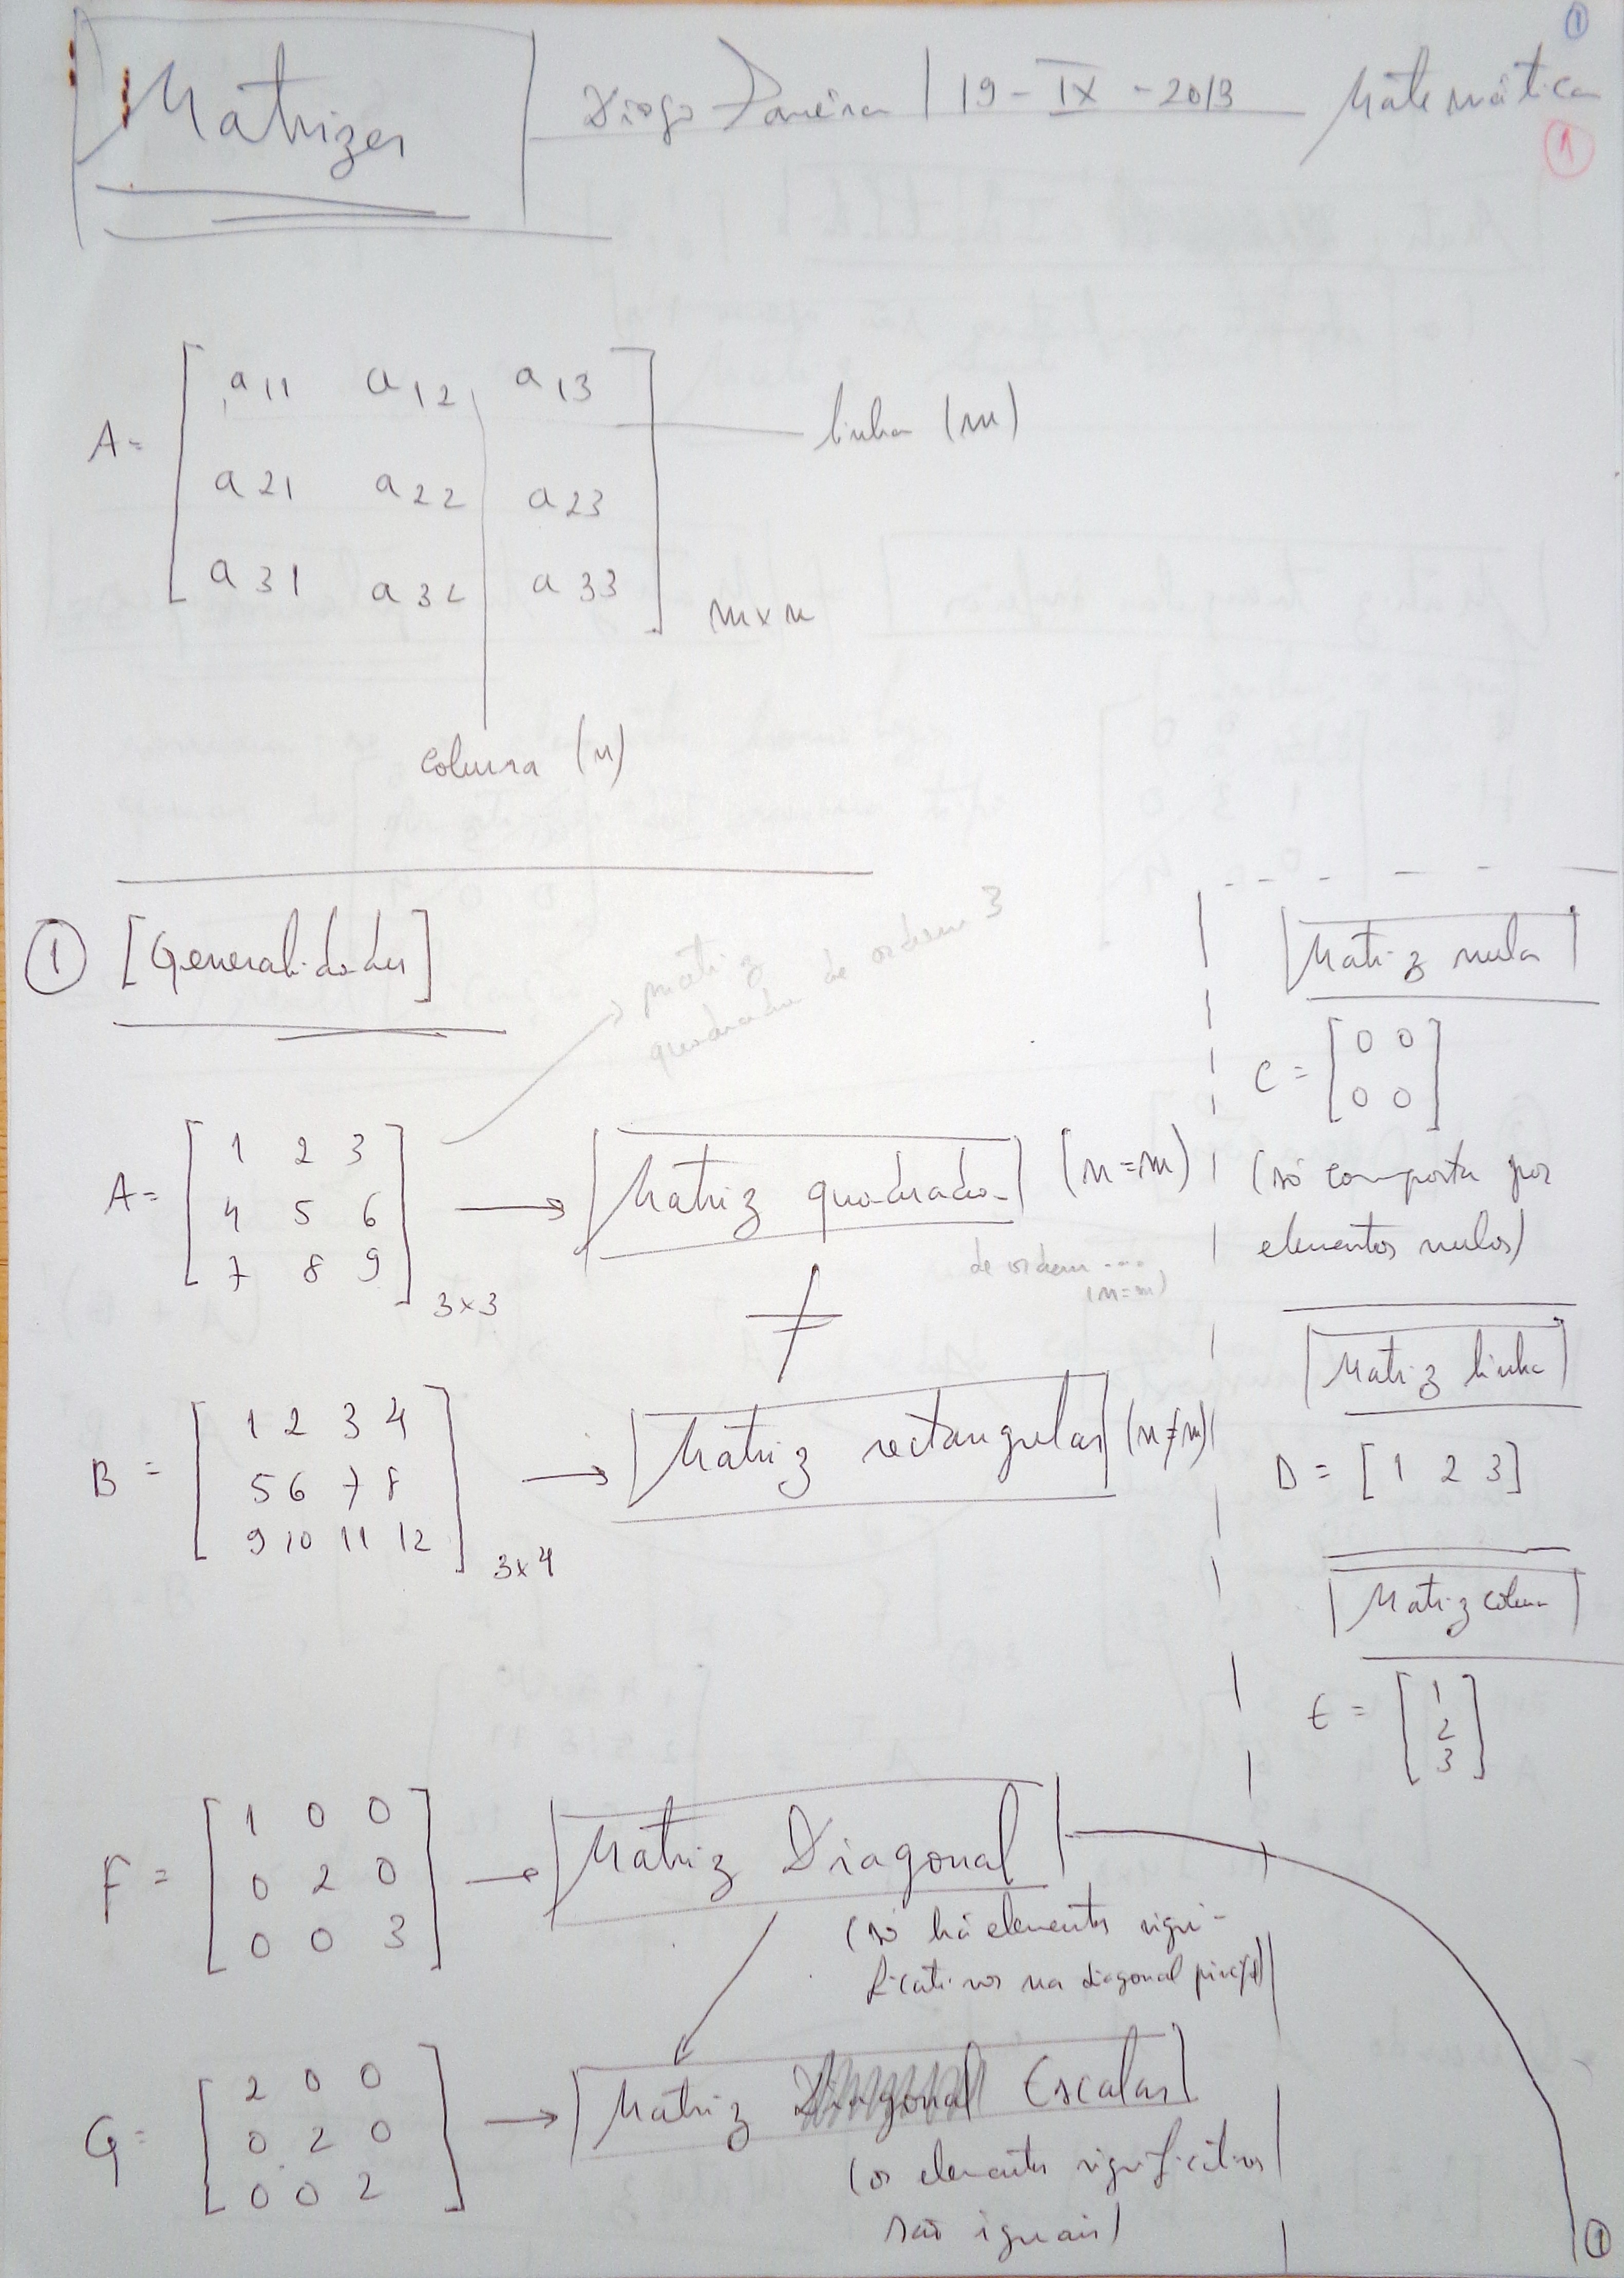 ①
Matrizes
Diogo | 19-IX-2013 Matemática
①
A= [ a11 a12 a13
a21 a22 a23
a31 a32 a33 ] m×n
linha (m)
coluna (n)
① [Generalidades]
matriz
quadrada de ordem 3
A= [ 1 2 3
4 5 6
7 8 9 ] 3×3
→ Matriz quadrada (n=m)
de ordem ....
(n=m)
≠
B = [ 1 2 3 4
5 6 7 8
9 10 11 12 ] 3×4
→ Matriz rectangular (n≠m)
Matriz nula
C = [ 0 0
0 0 ]
(só composta por
elementos nulos)
Matriz linha
D = [1 2 3]
Matriz coluna
E = [ 1
2
3 ]
F = [ 1 0 0
0 2 0
0 0 3 ]
→ Matriz Diagonal
(só há elementos signi-
ficativos na diagonal principal)
G= [ 2 0 0
0 2 0
0 0 2 ]
→ Matriz Diagonal Escalar
(os elementos significativos
são iguais)
①